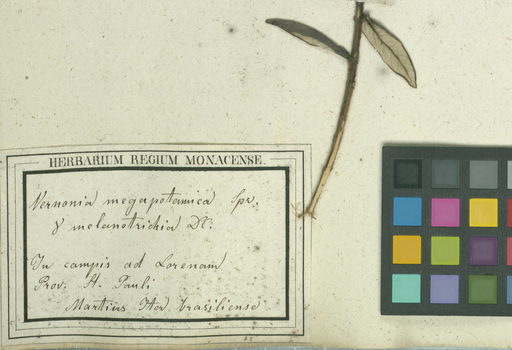 HERBARIUM REGIUM MONACENSE.
Vernonia megapotamica Spr.
γ melanotrichia DC.
In campis ad Lorenam
Prov. St. Pauli
Martius Iter brasiliense